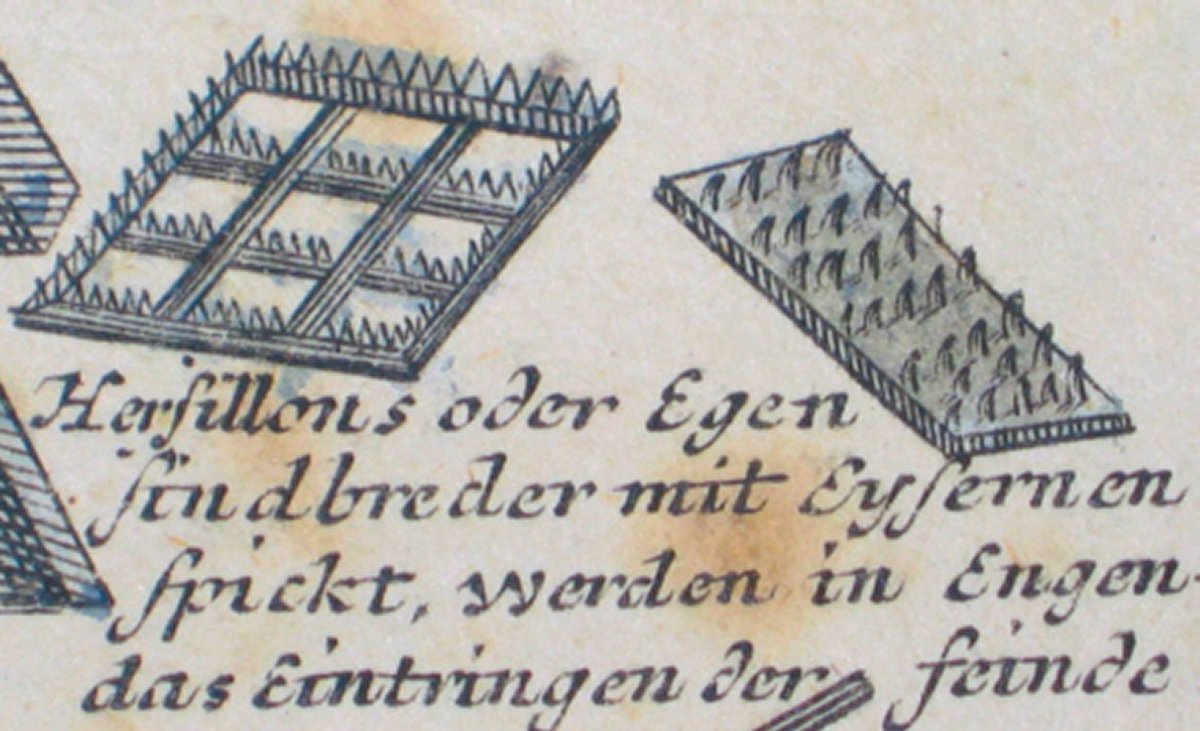 Hersillons oder Egen
sind breder mit Eysernen
spickt, werden in Engen
das Eintringen der feinde